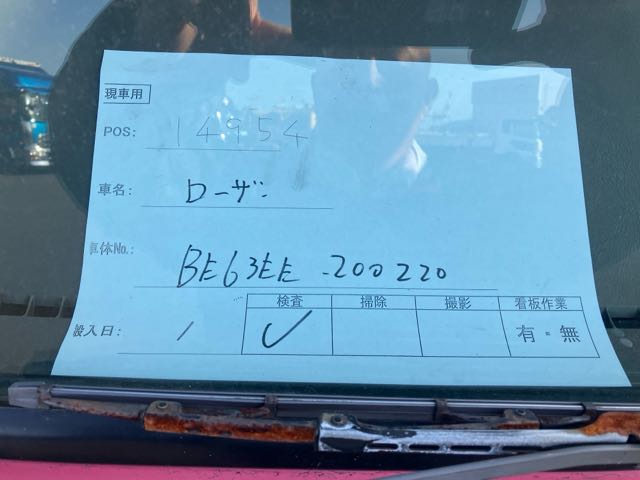 現車用
POS: 14954
車名: ローザ
車体No.: BE63EE-200220
検査 掃除 撮影 看板作業
搬入日: / ✓ 有・無